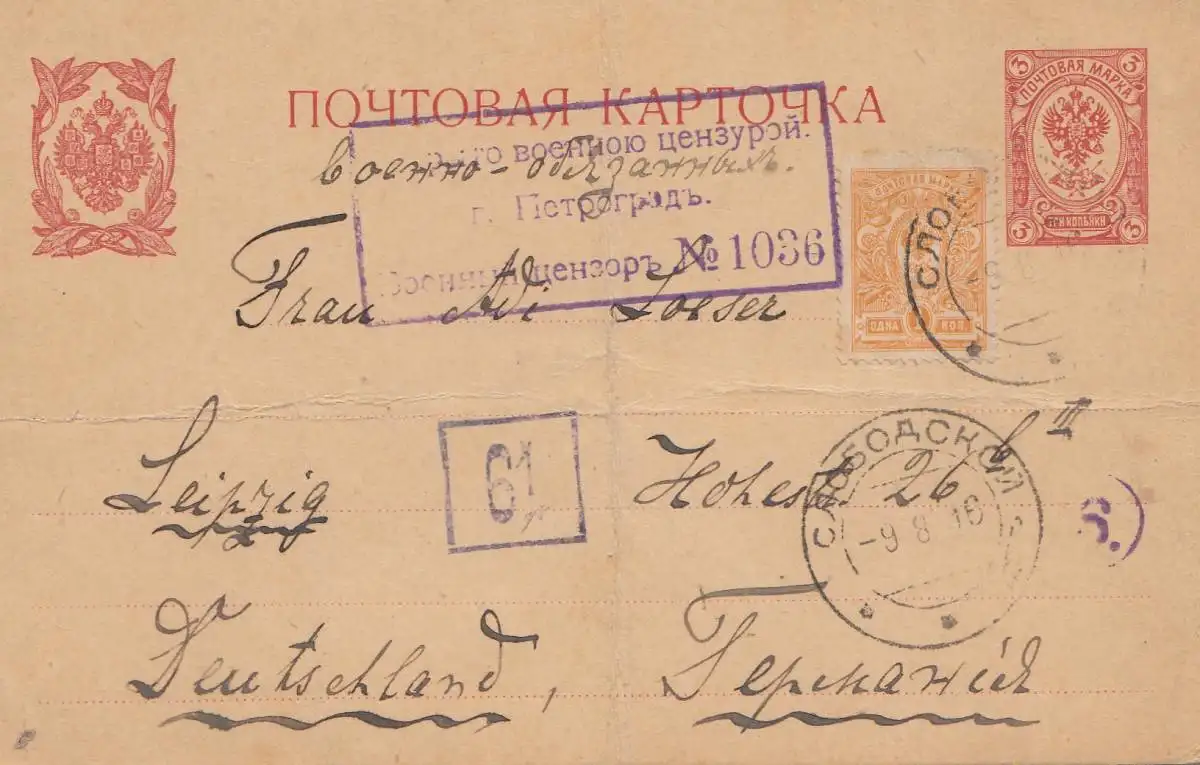 ПОЧТОВАЯ КАРТОЧКА
3 ПОЧТОВАЯ МАРКА 3
3 ТРИ КОПѢЙКИ 3
военною цензурой.
Военно-обязанныхъ.
г. Петроградъ.
Военный цензоръ № 1036
ПОЧТОВАЯ МАРКА
ОДНА 1 КОП.
Frau Adi Loeser
61
Leipzig Hohestr 26 b III
СЛОБОДСКОЙ
-9 8 16
6.)
Deutschland, Германія